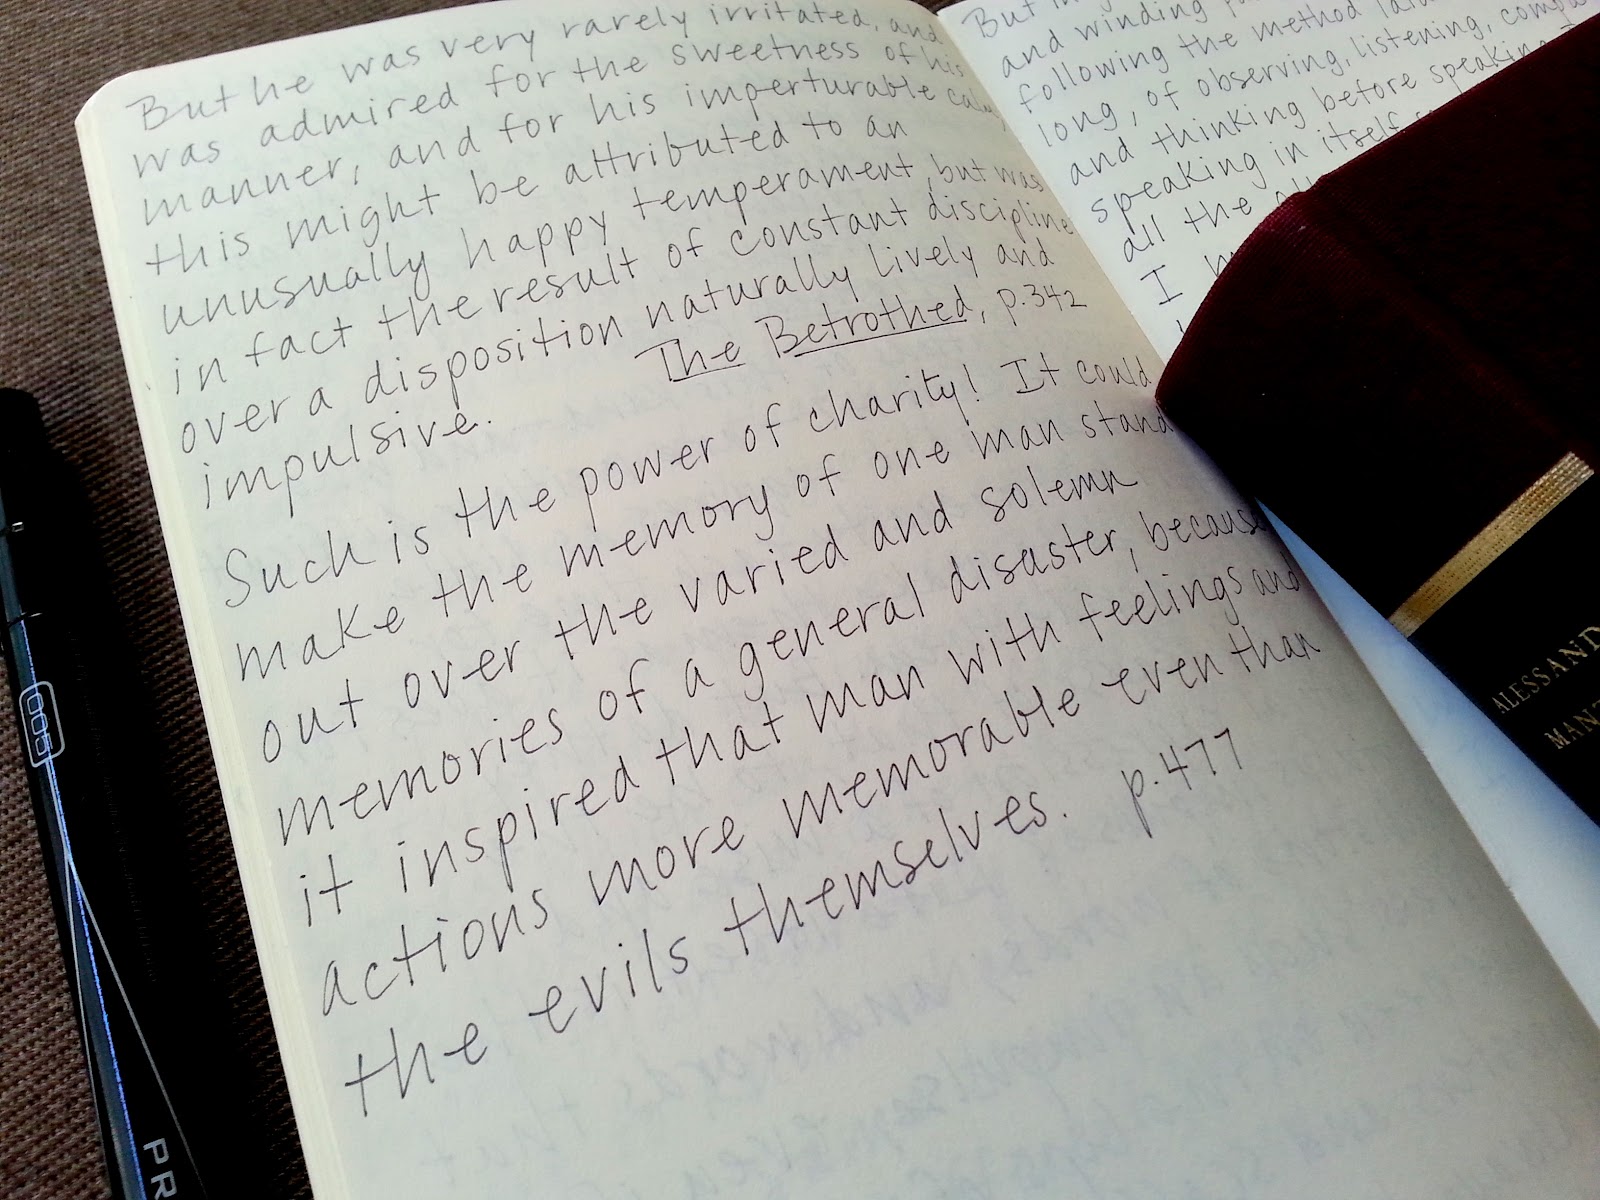 But he was very rarely irritated, and
was admired for the sweetness of his
manner, and for his imperturable calm,
this might be attributed to an
unusually happy temperament, but was
in fact the result of constant discipline
over a disposition naturally lively and
impulsive.
The Betrothed, p.342
Such is the power of charity! It could
make the memory of one man stand
out over the varied and solemn
memories of a general disaster, because
it inspired that man with feelings and
actions more memorable even than
the evils themselves. p.477
But
and winding
following the method
long, of observing, listening,
and thinking before speaking
speaking in itself
all the
I
ALESSAND
MAN
005
PR